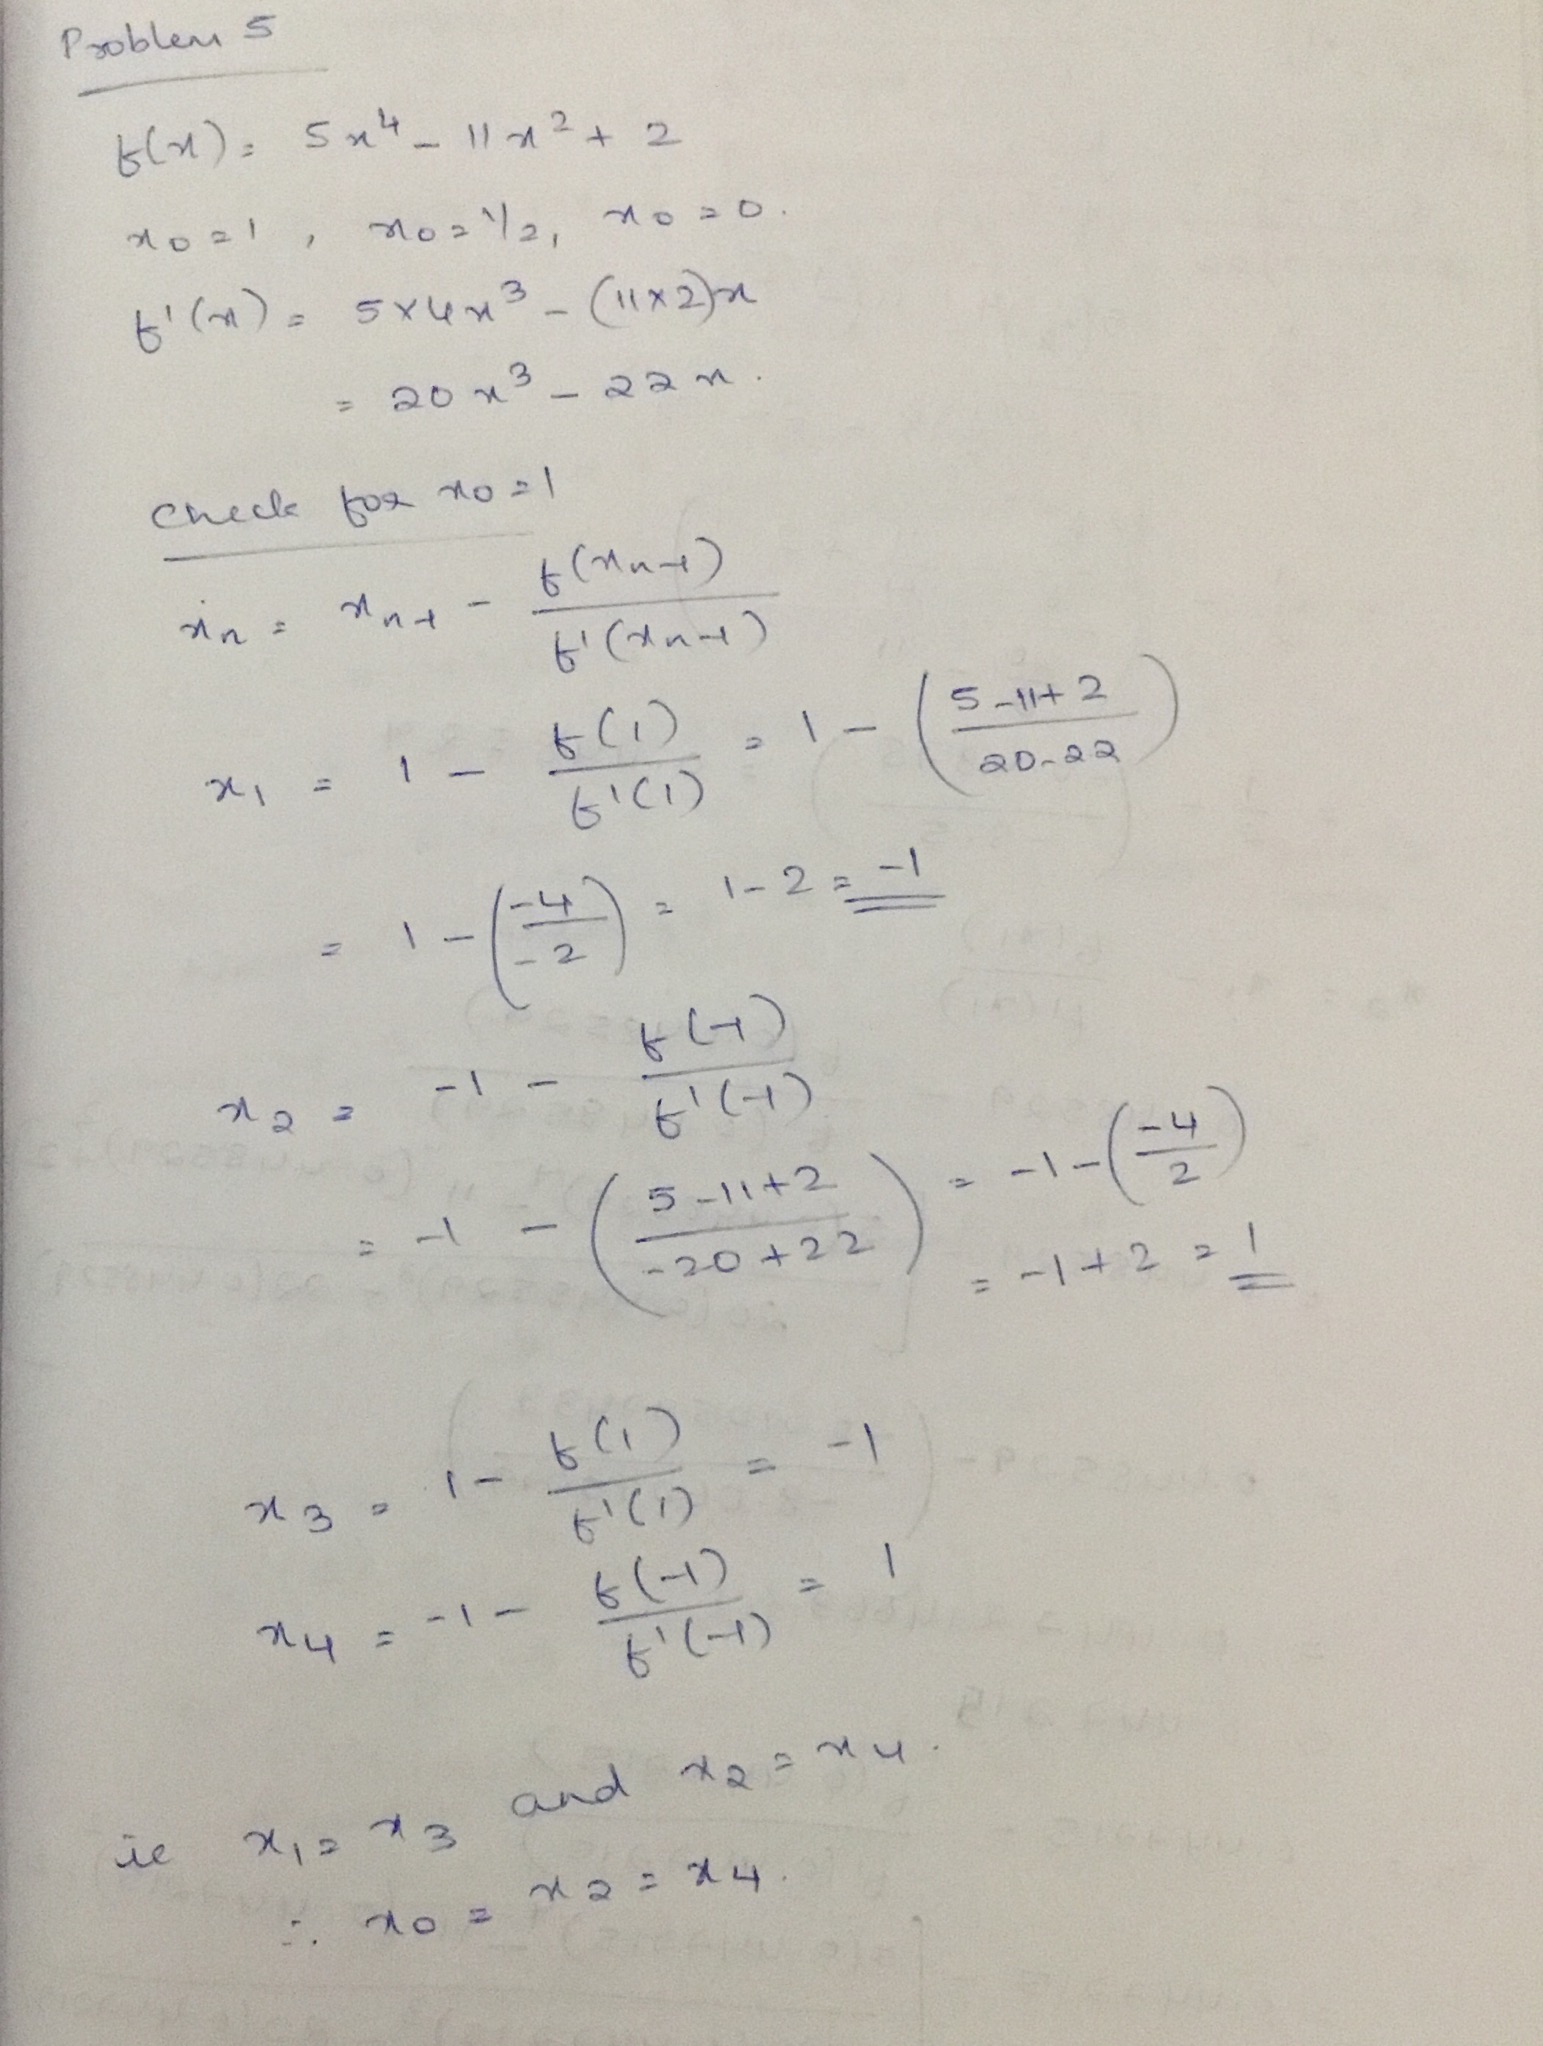 Problem 5
f(x) = 5x⁴ - 11x² + 2
x0 = 1, x0 = 1/2, x0 = 0.
f'(x) = 5×4x³ - (11×2)x
= 20x³ - 22x.
Check for x0 = 1
xn = xn-1 - f(xn-1)/f'(xn-1)
x1 = 1 - f(1)/f'(1) = 1 - (5-11+2/20-22)
= 1 - (-4/-2) = 1-2 = -1
x2 = -1 - f(-1)/f'(-1)
= -1 - (5-11+2/-20+22) = -1 - (-4/2)
= -1+2 = 1
x3 = 1 - f(1)/f'(1) = -1
x4 = -1 - f(-1)/f'(-1) = 1
ie x1 = x3 and x2 = x4.
∴ x0 = x2 = x4.